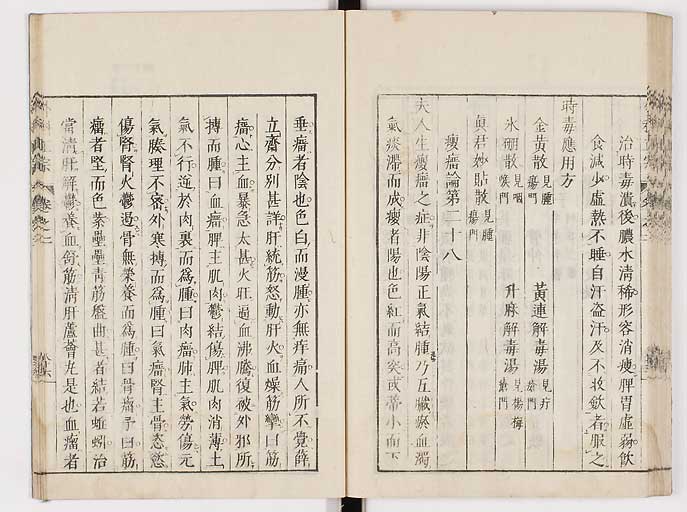 治時毒潰後膿水清稀形容消瘦脾胃虛弱飲
食減少虛熱不睡自汗盜汗及不收斂者服之
時毒應用方
金黃散見腫瘍門　黃連解毒湯見疔瘡門
氷硼散見咽喉門　升麻解毒湯見楊梅瘡門
真君妙貼散見腫瘍門
癭瘤論第二十八
夫人生癭瘤之症非陰陽正氣結腫乃五臟瘀血濁
氣痰滯而成癭者陽也色紅而高突或蒂小而下
垂瘤者陰也色白而漫腫亦無痒痛人所不覺薛
立齋分別甚詳肝統筋怒動肝火血燥筋攣曰筋
瘤心主血暴急太甚火旺逼血沸騰復被外邪所
搏而腫曰血瘤脾主肌肉鬱結傷脾肌肉消薄土
氣不行逆於肉裏而爲腫曰肉瘤肺主氣勞傷元
氣腠理不密外寒搏而爲腫曰氣瘤腎主骨恣慾
傷腎腎火鬱遏骨無榮養而爲腫曰骨瘤予曰筋
瘤者堅而色紫壘壘青筋盤曲甚者結若蚯蚓治
當清肝解鬱養血舒筋清肝蘆薈丸是也血瘤者